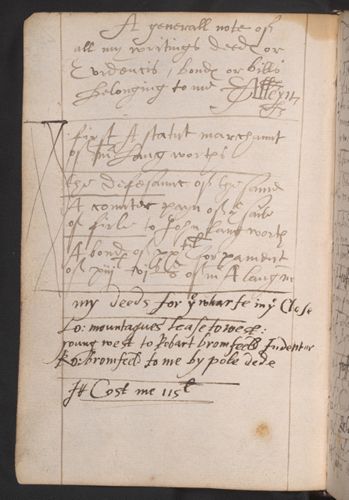 A generall note of
all my writings deeds or
Evidences, bonds or bills
belonging to me
first A statut marchaunt
of mr Langworths
the defesaunce of the same
A counter pain of ye sale
of firle to John Langworth
A bonde of xxli for paiment
of of mr A Lang
my deeds for ye wharfe in ye Close
Lo: mountagues lease to west:
young west to Robart bromfeeld Indentur
Ro: bromfeeld to me by pole dede
It Cost me 115li